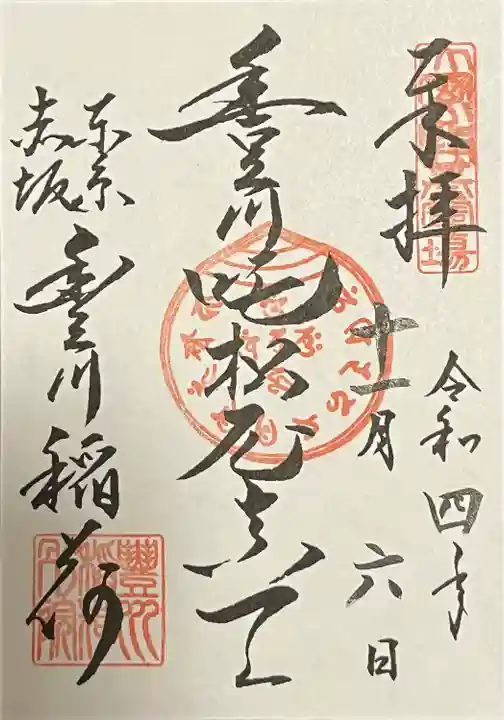 奉拝
令和四年
十一月六日
豊川吒枳尼真天
東京
赤坂
豊川稲荷